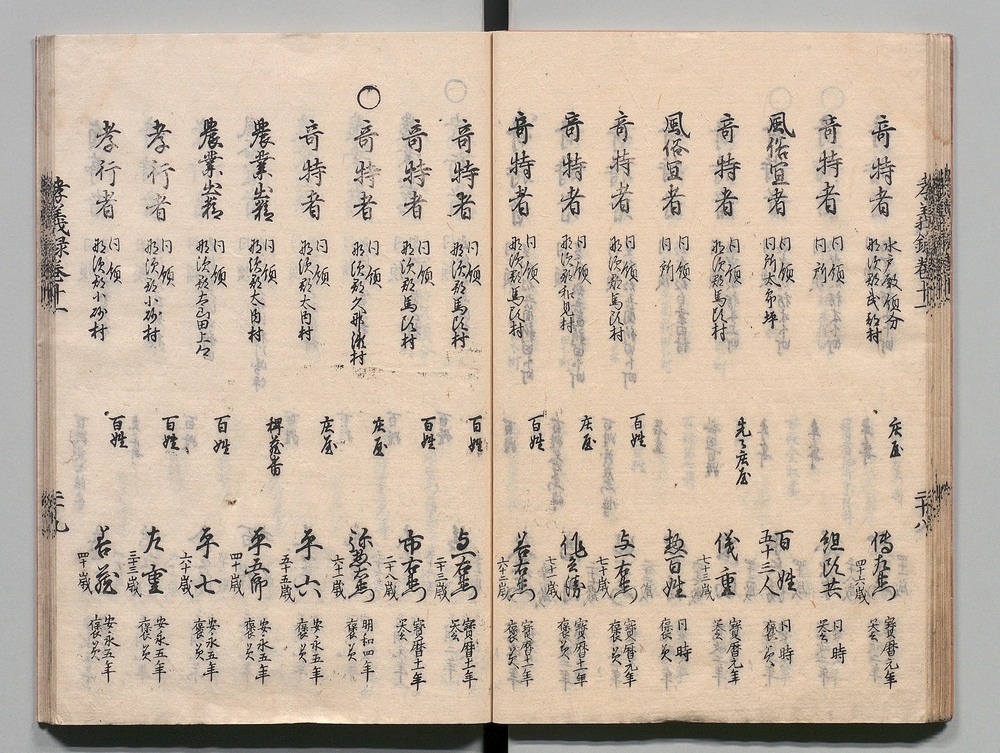 孝義録巻十一
奇特者 水戸殿領分 那須郡武部村 庄屋 傳左衛門 四十六歳 寳暦元年 褒美
奇特者 同領 同所 組頭共 同時 褒美
風俗宜者 同領 同所太郎坪 百姓 五十三人 同時 褒美
奇特者 同領 那須郡馬頭村 先々庄屋 儀重 七十三歳 寳暦元年 褒美
風俗宜者 同領 同所 惣百姓 同時 褒美
奇特者 同領 那須郡馬頭村 百姓 与右衛門 七十歳 寳暦元年 褒美
奇特者 同領 那須郡和見村 庄屋 七十一歳 寳暦十一年 褒美
奇特者 同領 那須郡馬頭村 百姓 若右衛門 六十二歳 寳暦十一年 褒美
二十八
奇特者 同領 那須郡馬頭村 百姓 与右衛門 二十三歳 寳暦十一年 褒美
奇特者 同領 那須郡馬頭村 百姓 市右衛門 二十八歳 寳暦十一年 褒美
○奇特者 同領 那須郡久那瀬村 庄屋 弥惣左衛門 六十一歳 明和四年 褒美
奇特者 同領 那須郡大内村 庄屋 平六 五十五歳 安永五年 褒美
農業出精 同領 那須郡大内村 稗蔵番 平五郎 四十歳 安永五年 褒美
農業出精 同領 那須郡大山田上郷 百姓 平七 六十歳 安永五年 褒美
孝行者 同領 那須郡小砂村 百姓 左重 三十三歳 安永五年 褒美
孝行者 同領 那須郡小砂村 百姓 若蔵 四十歳 安永五年 褒美
孝義録巻十一
二十九